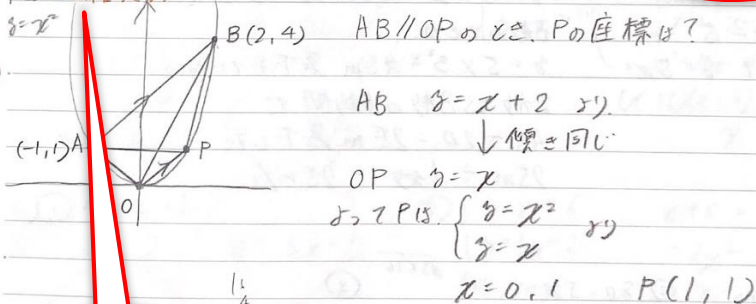 y=x²
B(2,4)
(-1,1)A
P
O
AB//OPのとき、Pの座標は？
AB y=x+2 より
↓傾き同じ
OP y=x
よってPは、{y=x² y=x より
x=0,1 P(1,1)